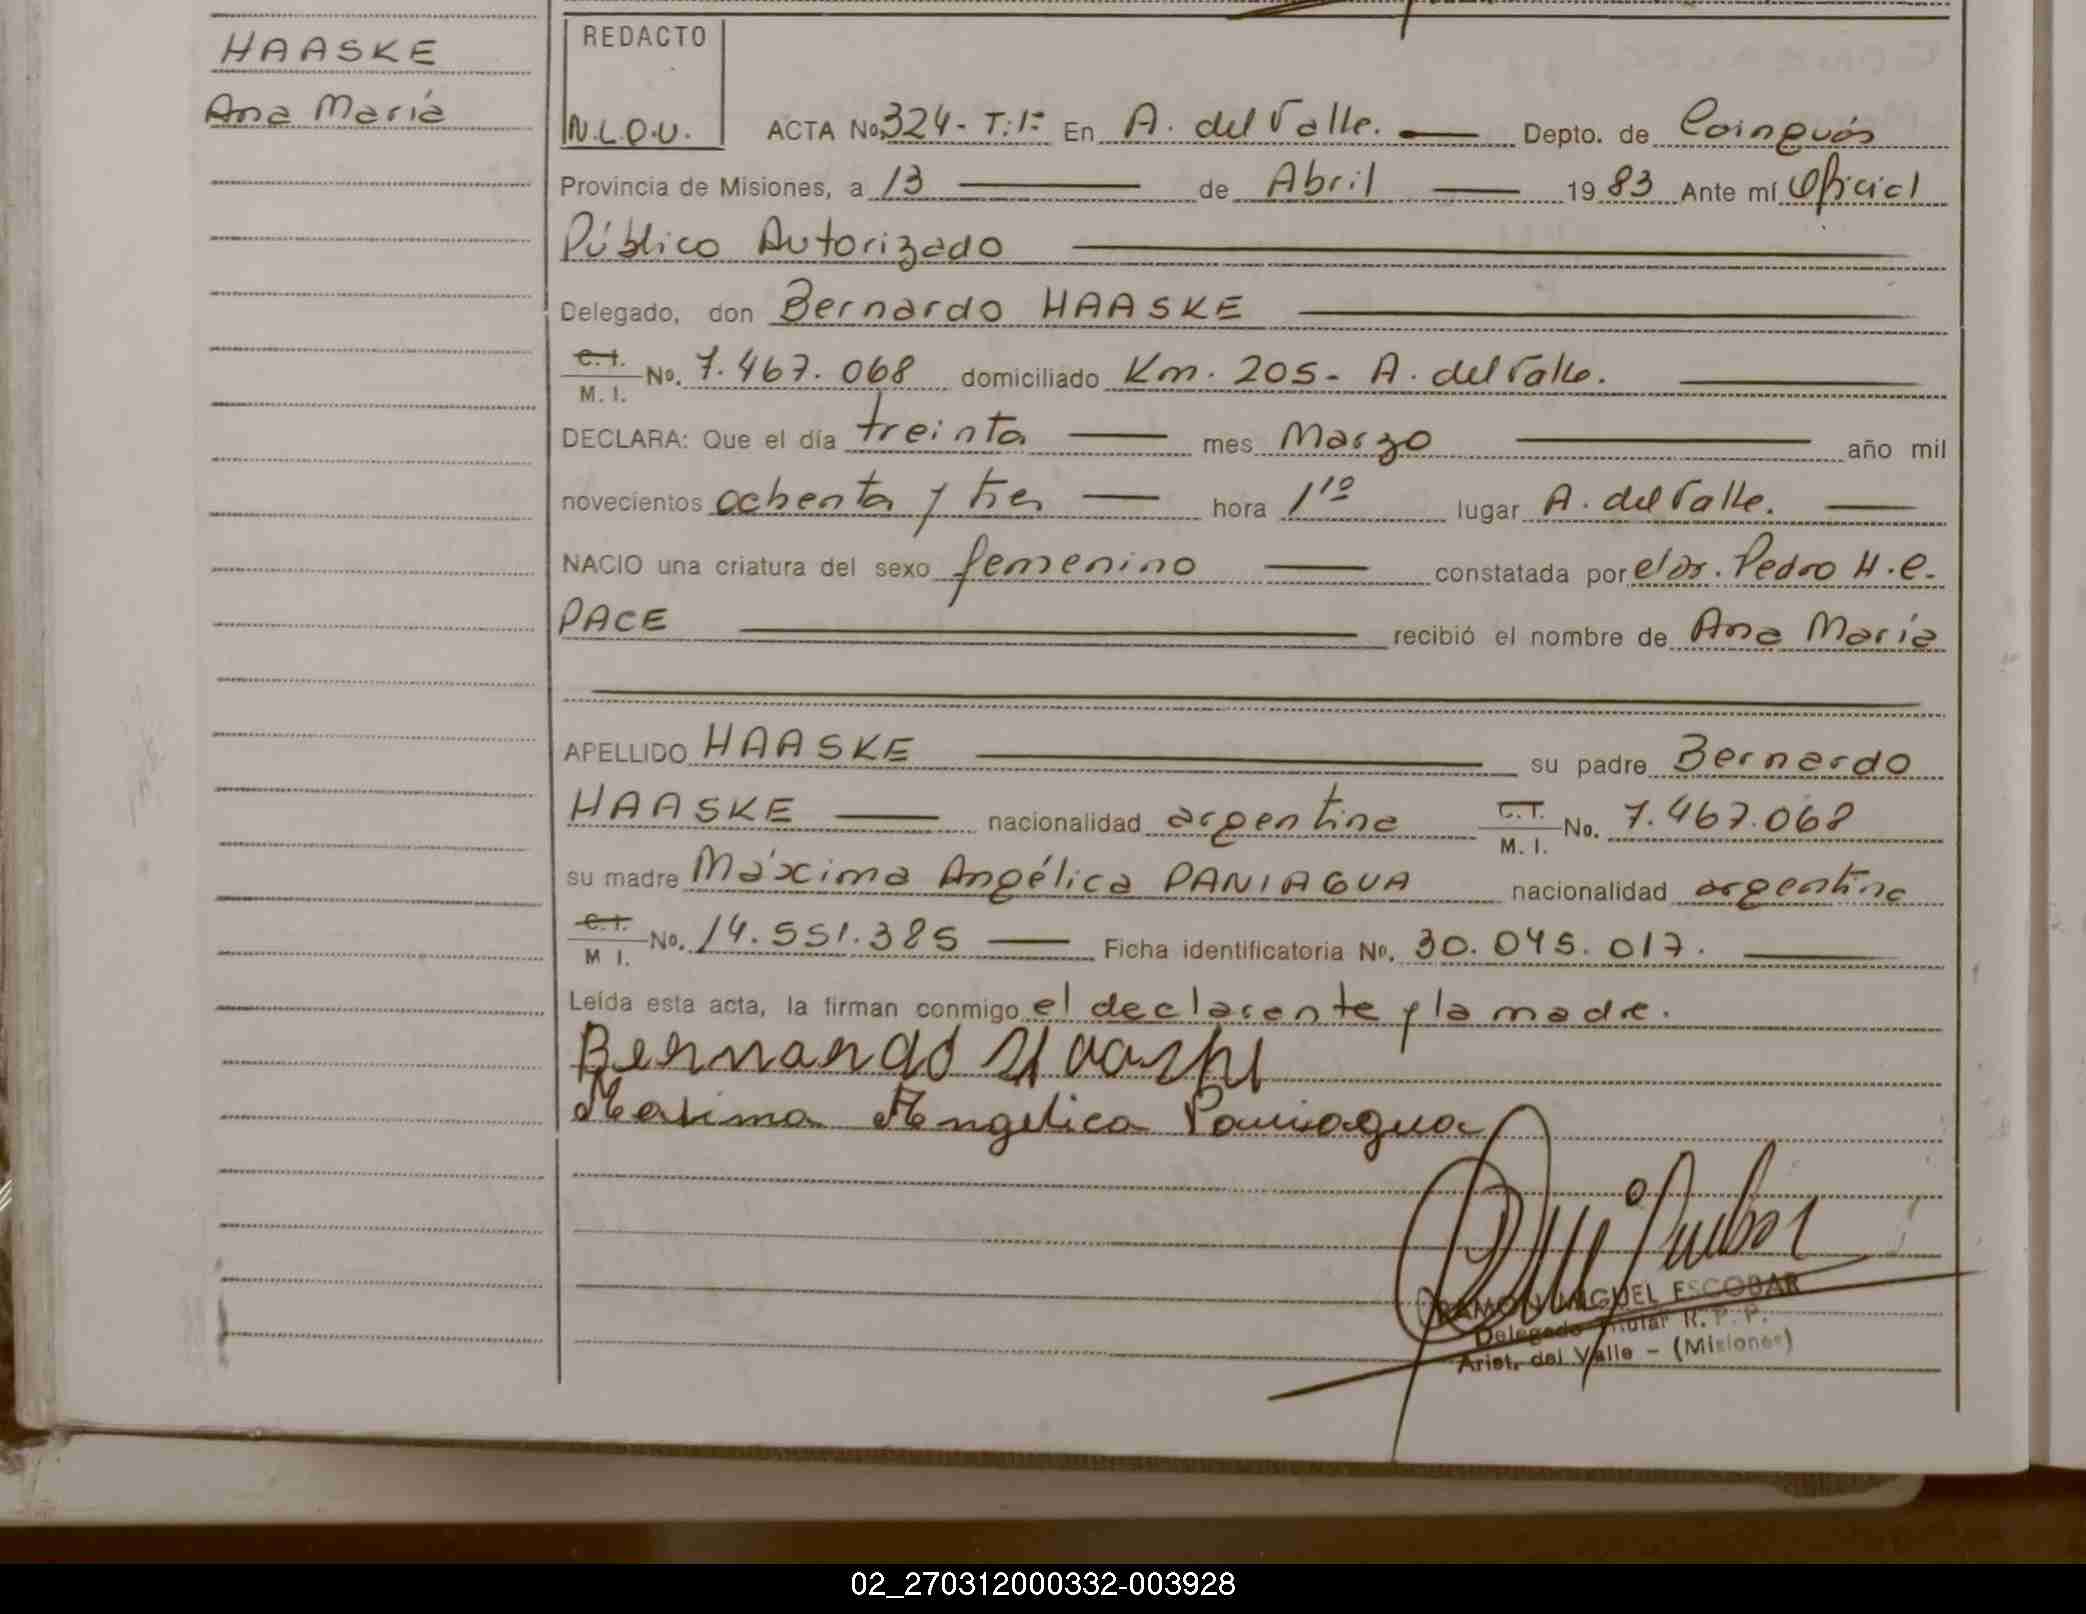 HAASKE
Ana María
REDACTO
N.L.O.U.
ACTA No. 324- T:1º En A. del Valle. Depto. de Cainguás
Provincia de Misiones, a 13 de Abril 19 83 Ante mí Oficial
Público Autorizado
Delegado, don Bernardo HAASKE
C.I. M. I. No. 7.467.068 domiciliado Km. 205- A. del Valle.
DECLARA: Que el día treinta mes Marzo año mil
novecientos ochenta y tres hora 1¹º lugar A. del Valle.
NACIO una criatura del sexo femenino constatada por el Dr. Pedro H.C.
PACE recibió el nombre de Ana María
APELLIDO HAASKE su padre Bernardo
HAASKE nacionalidad argentina C.I. M. I. No. 7.467.068
su madre Máxima Angélica PANIAGUA nacionalidad argentina
C.I. M I. No. 14.551.385 Ficha identificatoria No. 30.045.017.
Leída esta acta, la firman conmigo el declarante y la madre.
Bernardo Haaske
Maxima Angelica Paniagua
RAMON MIGUEL ESCOBAR
Delegado Titular R. P. P.
Arist. del Valle - (Misiones)
02_270312000332-003928